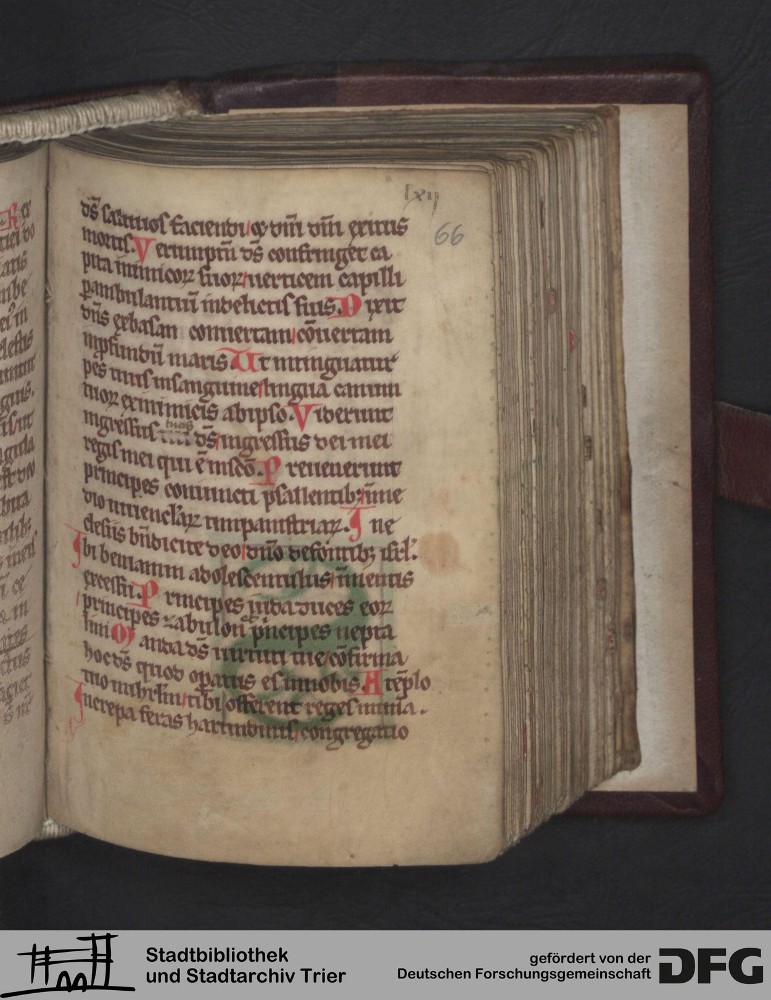 lxij
66
dẜ saluos faciendi et dñi dñi exitus
mortis. Verumptñ dẜ confringet ca
pita inimicoꝝ suoꝝ uerticem capilli
perambulantiũ indelictis suis. Dixit
dñs exbasan conuertam cõuertam
inpfundũ maris Ut intinguatur
pes tuus insanguine lingua canum
tuoꝝ exinimicis abipso. Viderunt
ingressus tuos dẜ ingressus dei mei
regis mei qui ẽ insčo. Preuenerunt
principes coniuncti psallentibꝫ inme
dio iuuencľaꝝ timpanistriaꝝ. In ec
clesiis bñdicite deo dño defontibꝫ isrľ.
Ibi beniamin adolescentulus ĩmentis
excessu. Principes iuda duces eoꝝ
principes zabulon pncipes nepta
lim Manda dẜ uirtuti tue cõfirma
hoc dẜ quod opatus es innobis A tẽplo
tuo inihrľm tibi offerent reges mun̄a.
Increpa feras harundinis congregatio
Stadtbibliothek
und Stadtarchiv Trier
gefördert von der
Deutschen Forschungsgemeinschaft
DFG